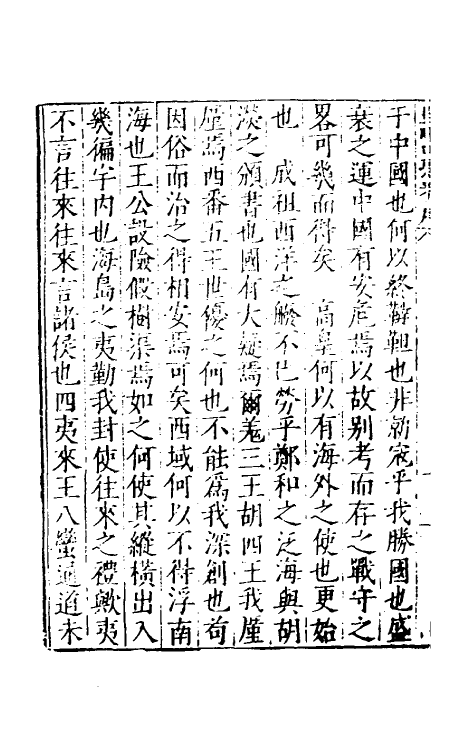 于中國也何以終韃靼也非新寇乎我勝國也盛
衰之運中國有安危焉以故別考而存之戰守之
畧可幾而得矣　高皇何以有海外之使也更始
也　成祖西洋之䑸不已勞乎鄭和之泛海與胡
濙之頒書也國有大疑焉爾羗三王胡四王我廑
廑焉西番五王世優之何也不能爲我深創也苟
因俗而治之得相安焉可矣西域何以不得浮南
海也王公設險假樹渠焉如之何使其縱橫出入
幾徧宇内也海島之夷勤我封使往來之禮歟夷
不言往來往來言諸侯也四夷來王八蠻通道未